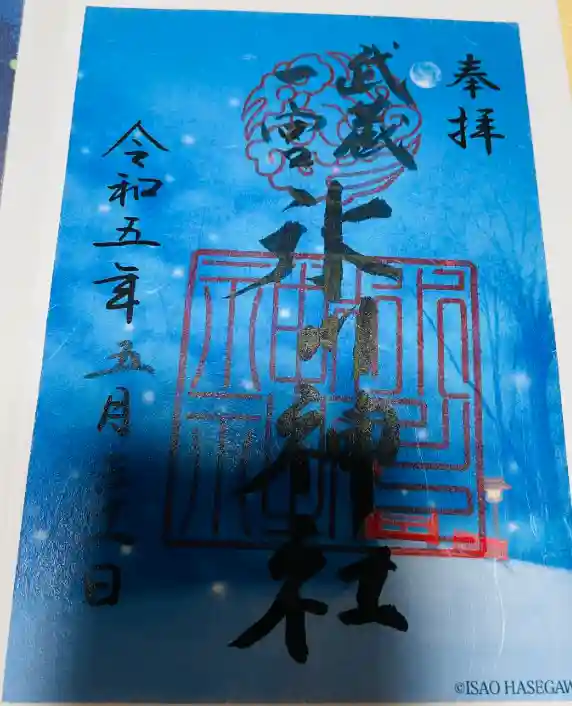 奉拝
武蔵
一宮
氷川神社
令和五年五月 日
©ISAO HASEGAW